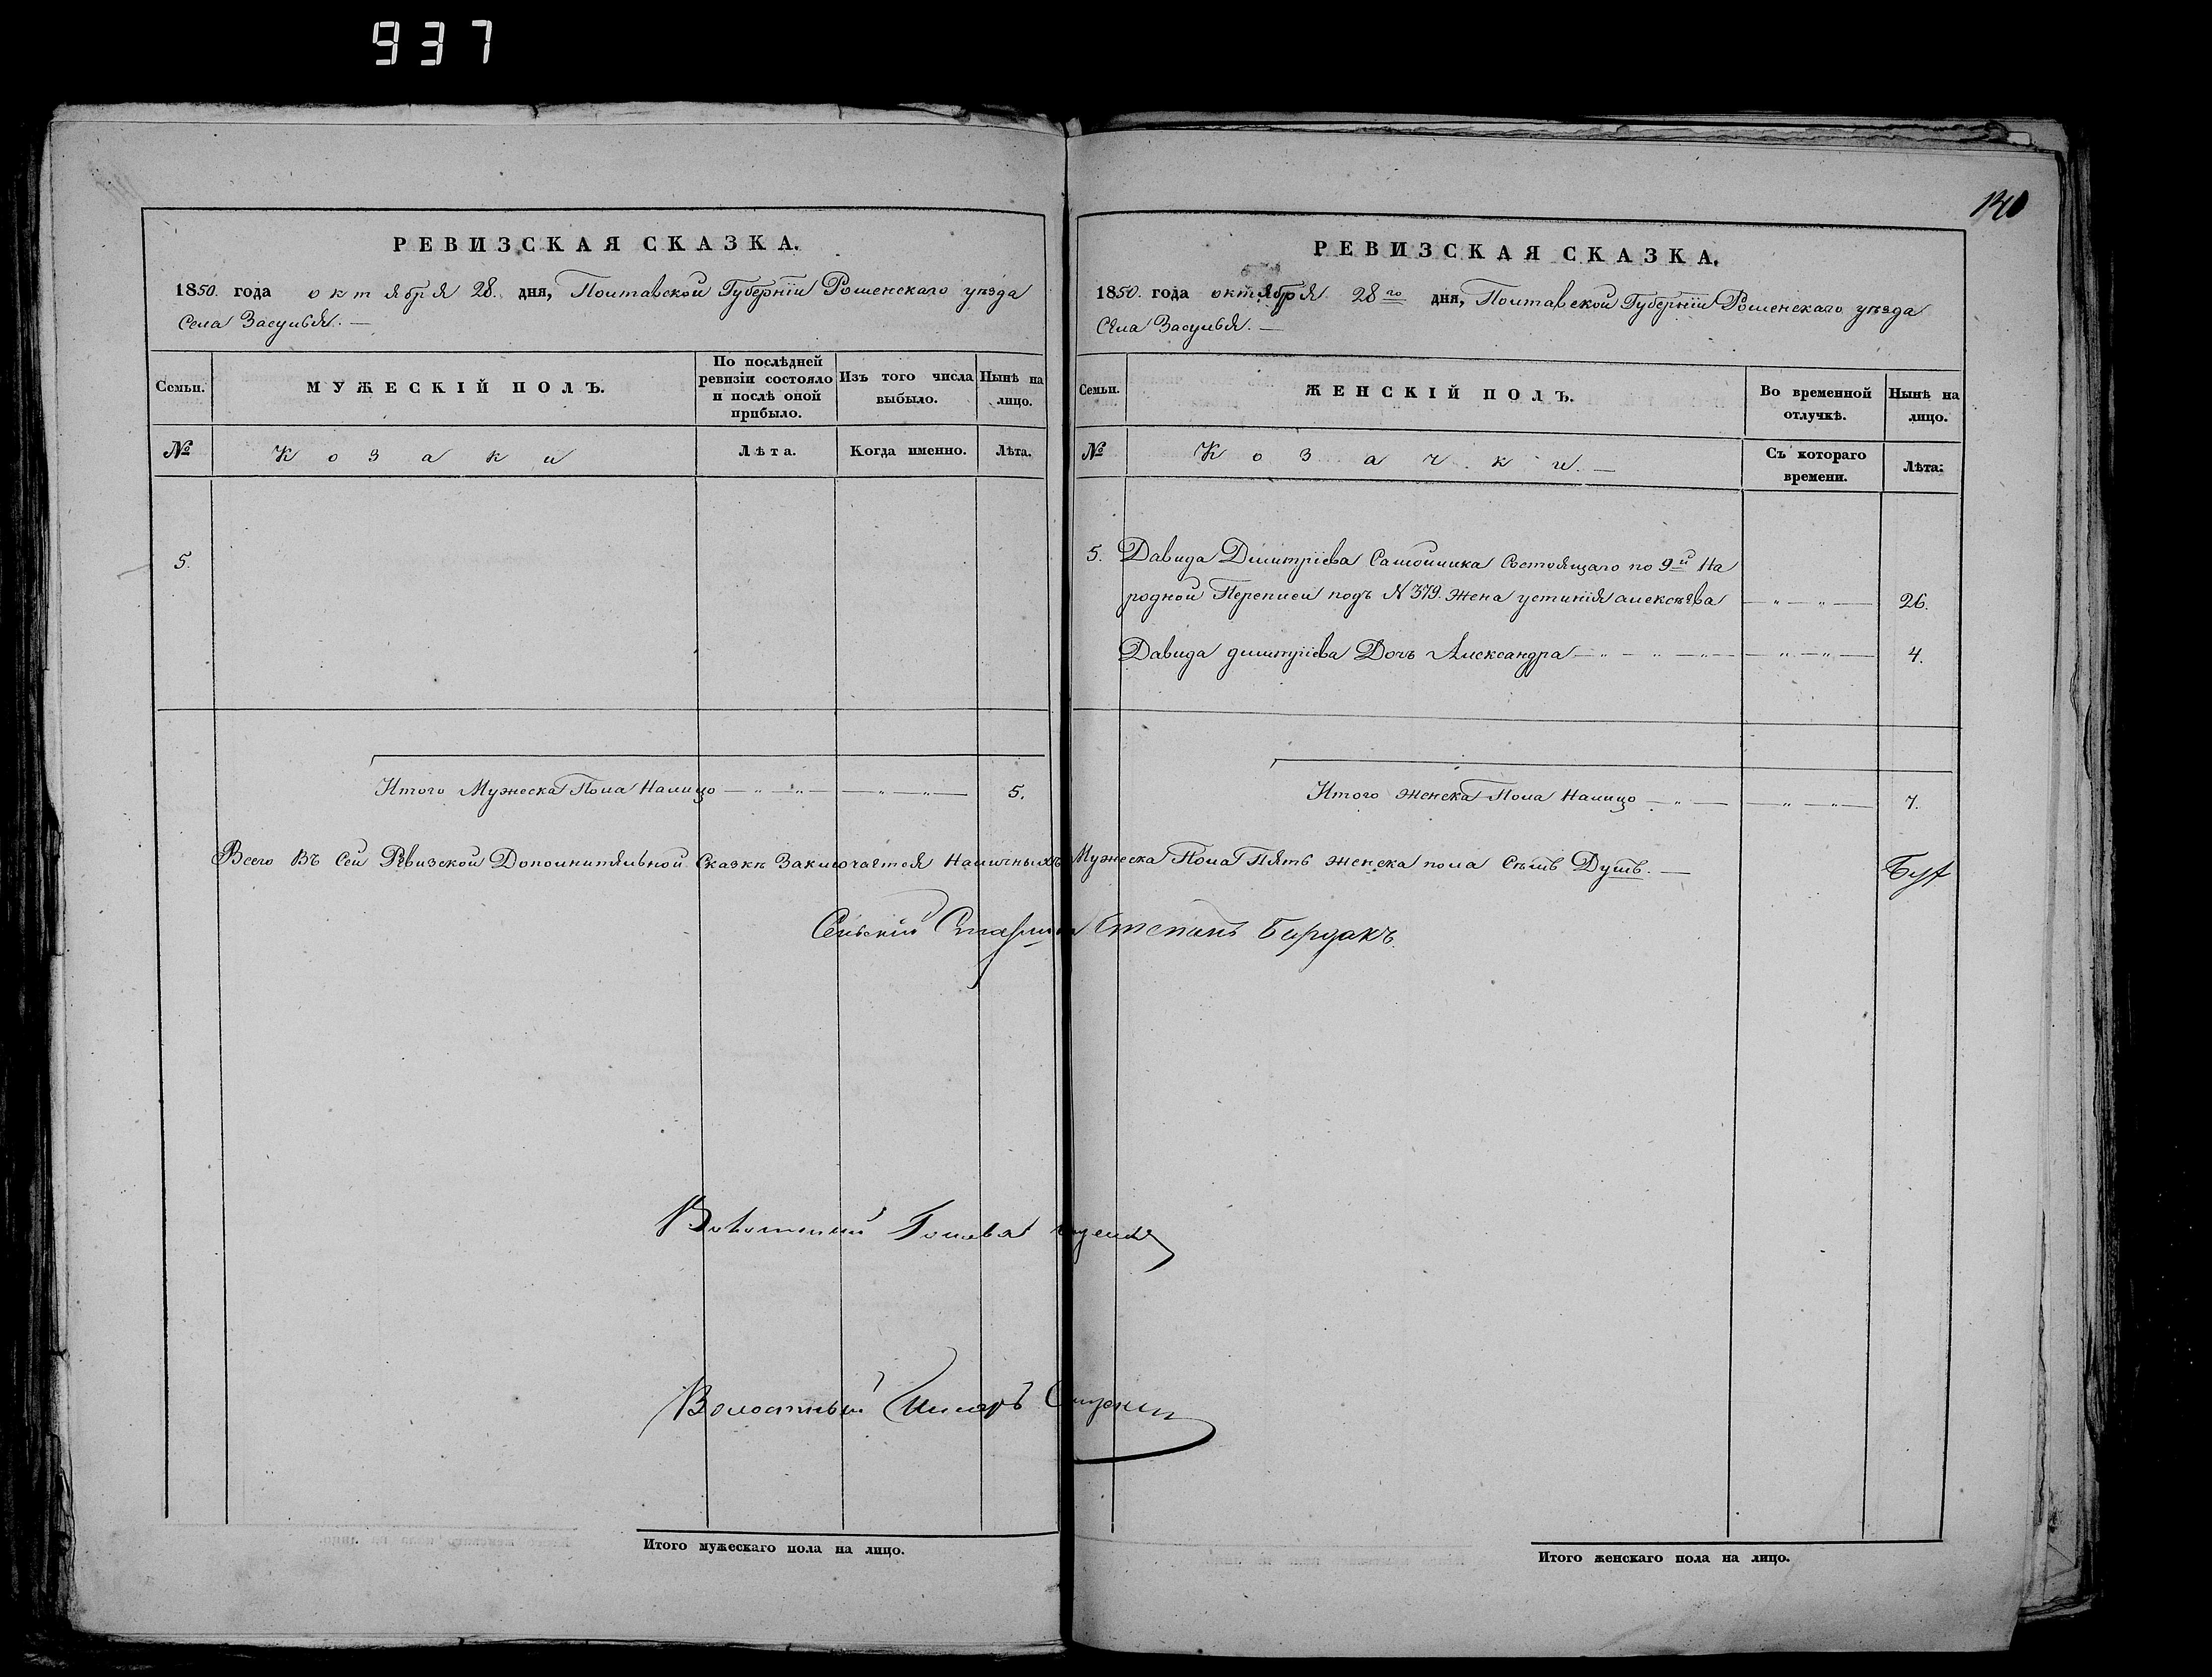 937
РЕВИЗСКАЯ СКАЗКА.
1850. года октября 28. дня, Полтавской Губерніи Роменскаго уѣзда
Села Засулья. —
Семьи.
МУЖЕСКІЙ ПОЛЪ.
По послѣдней
ревизіи состояло
и послѣ оной
прибыло.
Изъ того числа
выбыло.
Нынѣ на
лицо.
№
Козаки
Лѣта.
Когда именно.
Лѣта.
5.
Итого Мужеска Пола Налицо — „ — „ — — „ — „ — 5.
Всего Въ Сей Ревизской Дополнительной Сказкѣ Заключается Наличныхъ Мужеска Пола Пять женска пола Семь Душъ. —
Сельскій Старшина Степанъ Бардакъ.
Волостный Голова
Волостный Писарь
Итого мужескаго пола на лицо.
140
РЕВИЗСКАЯ СКАЗКА.
1850. года октября 28го дня, Полтавской Губерніи Роменскаго уѣзда
Села Засулья. —
Семьи.
ЖЕНСКІЙ ПОЛЪ.
Во временной
отлучкѣ.
Нынѣ на
лицо.
№
Козачки. —
Съ котораго
времени.
Лѣта.
5. Давида Димитріева Самойлика Состоящаго по 9й На
родной Переписи подъ N 379. жена устинія алексѣева — „ — „ — 26.
Давида димитріева Дочь Александра — „ — „ — „ — — „ — „ — 4.
Итого женска Пола Налицо — „ — — „ — „ — 7.
Итого женскаго пола на лицо.